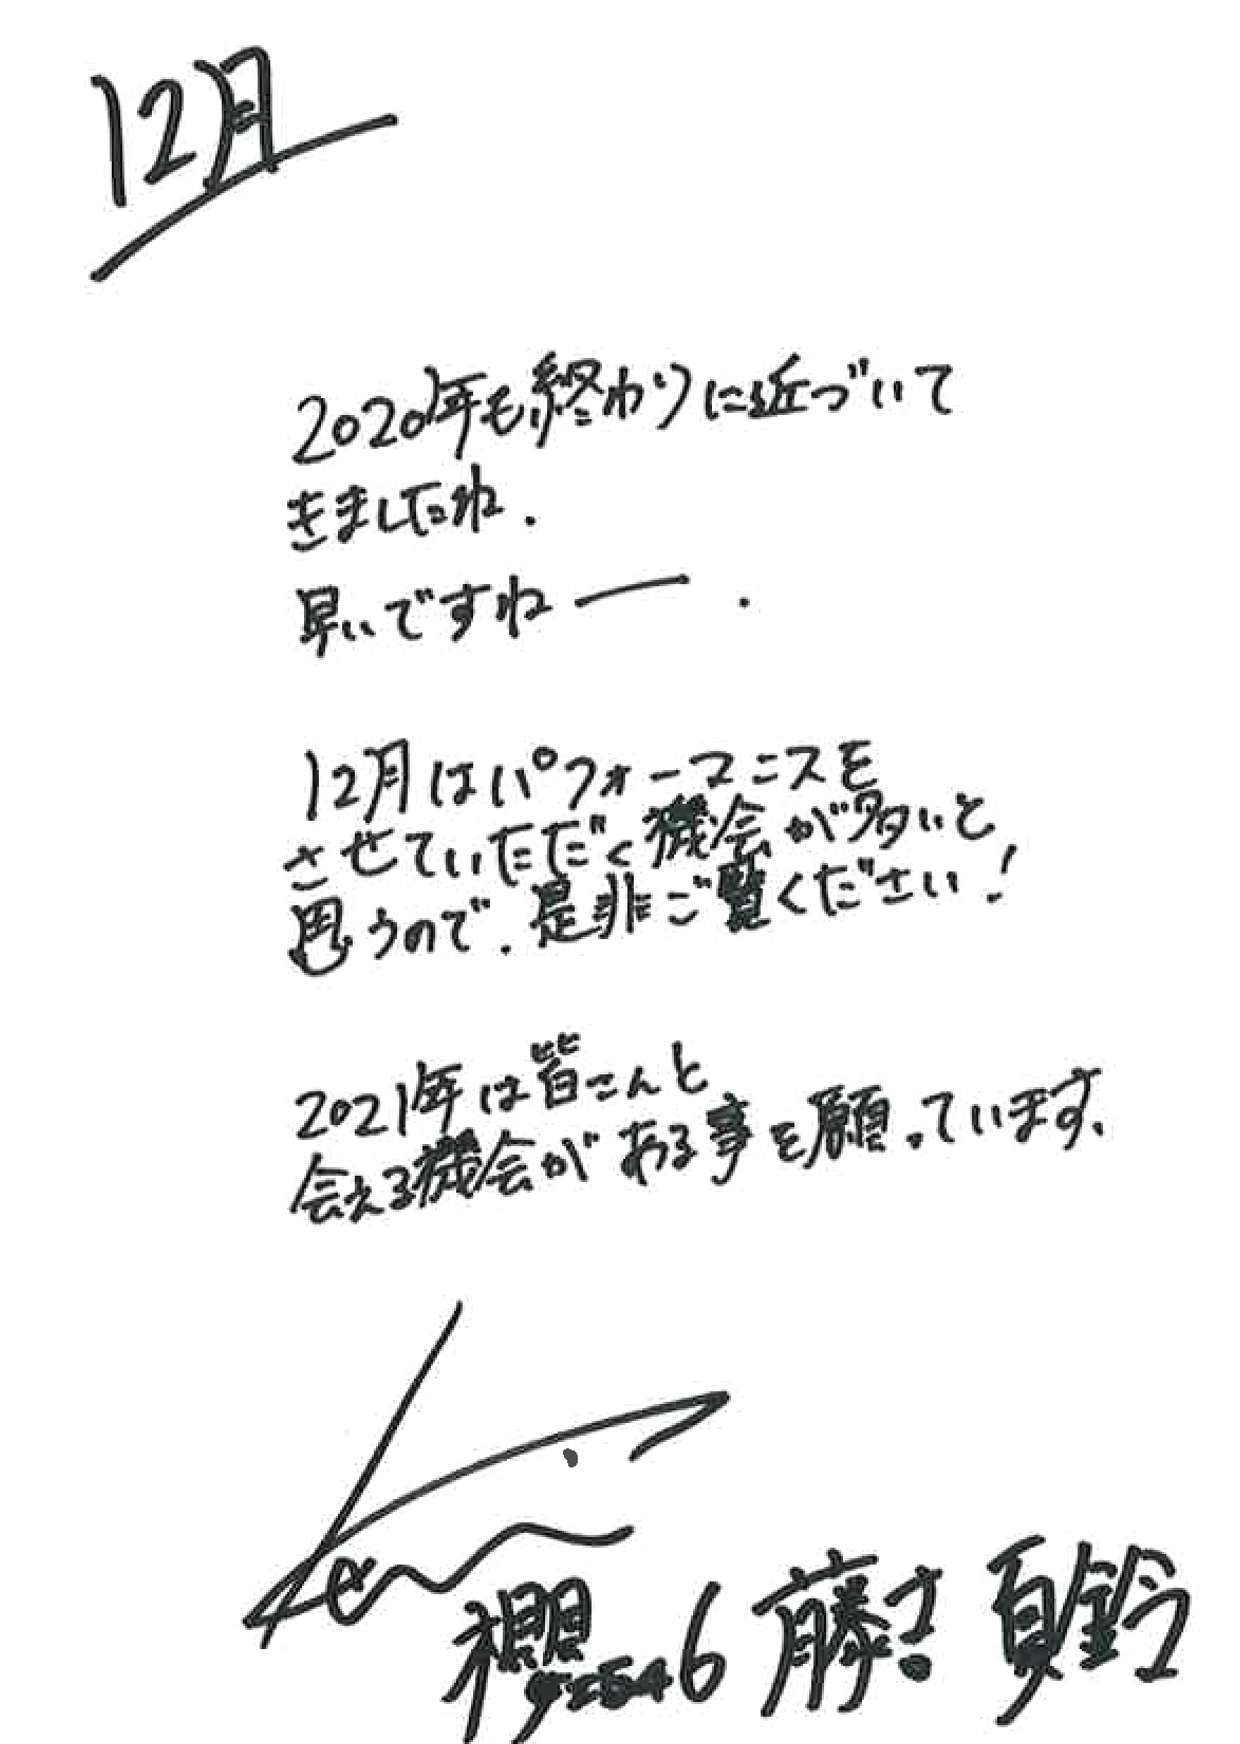 12月
2020年も終わりに近づいて
きましたね.
早いですねー.
12月はパフォーマンスを
させていただく機会が多いと
思うので.是非ご覧ください!
2021年は皆さんと
会える機会がある事を願っています.
櫻坂46 藤吉 夏鈴